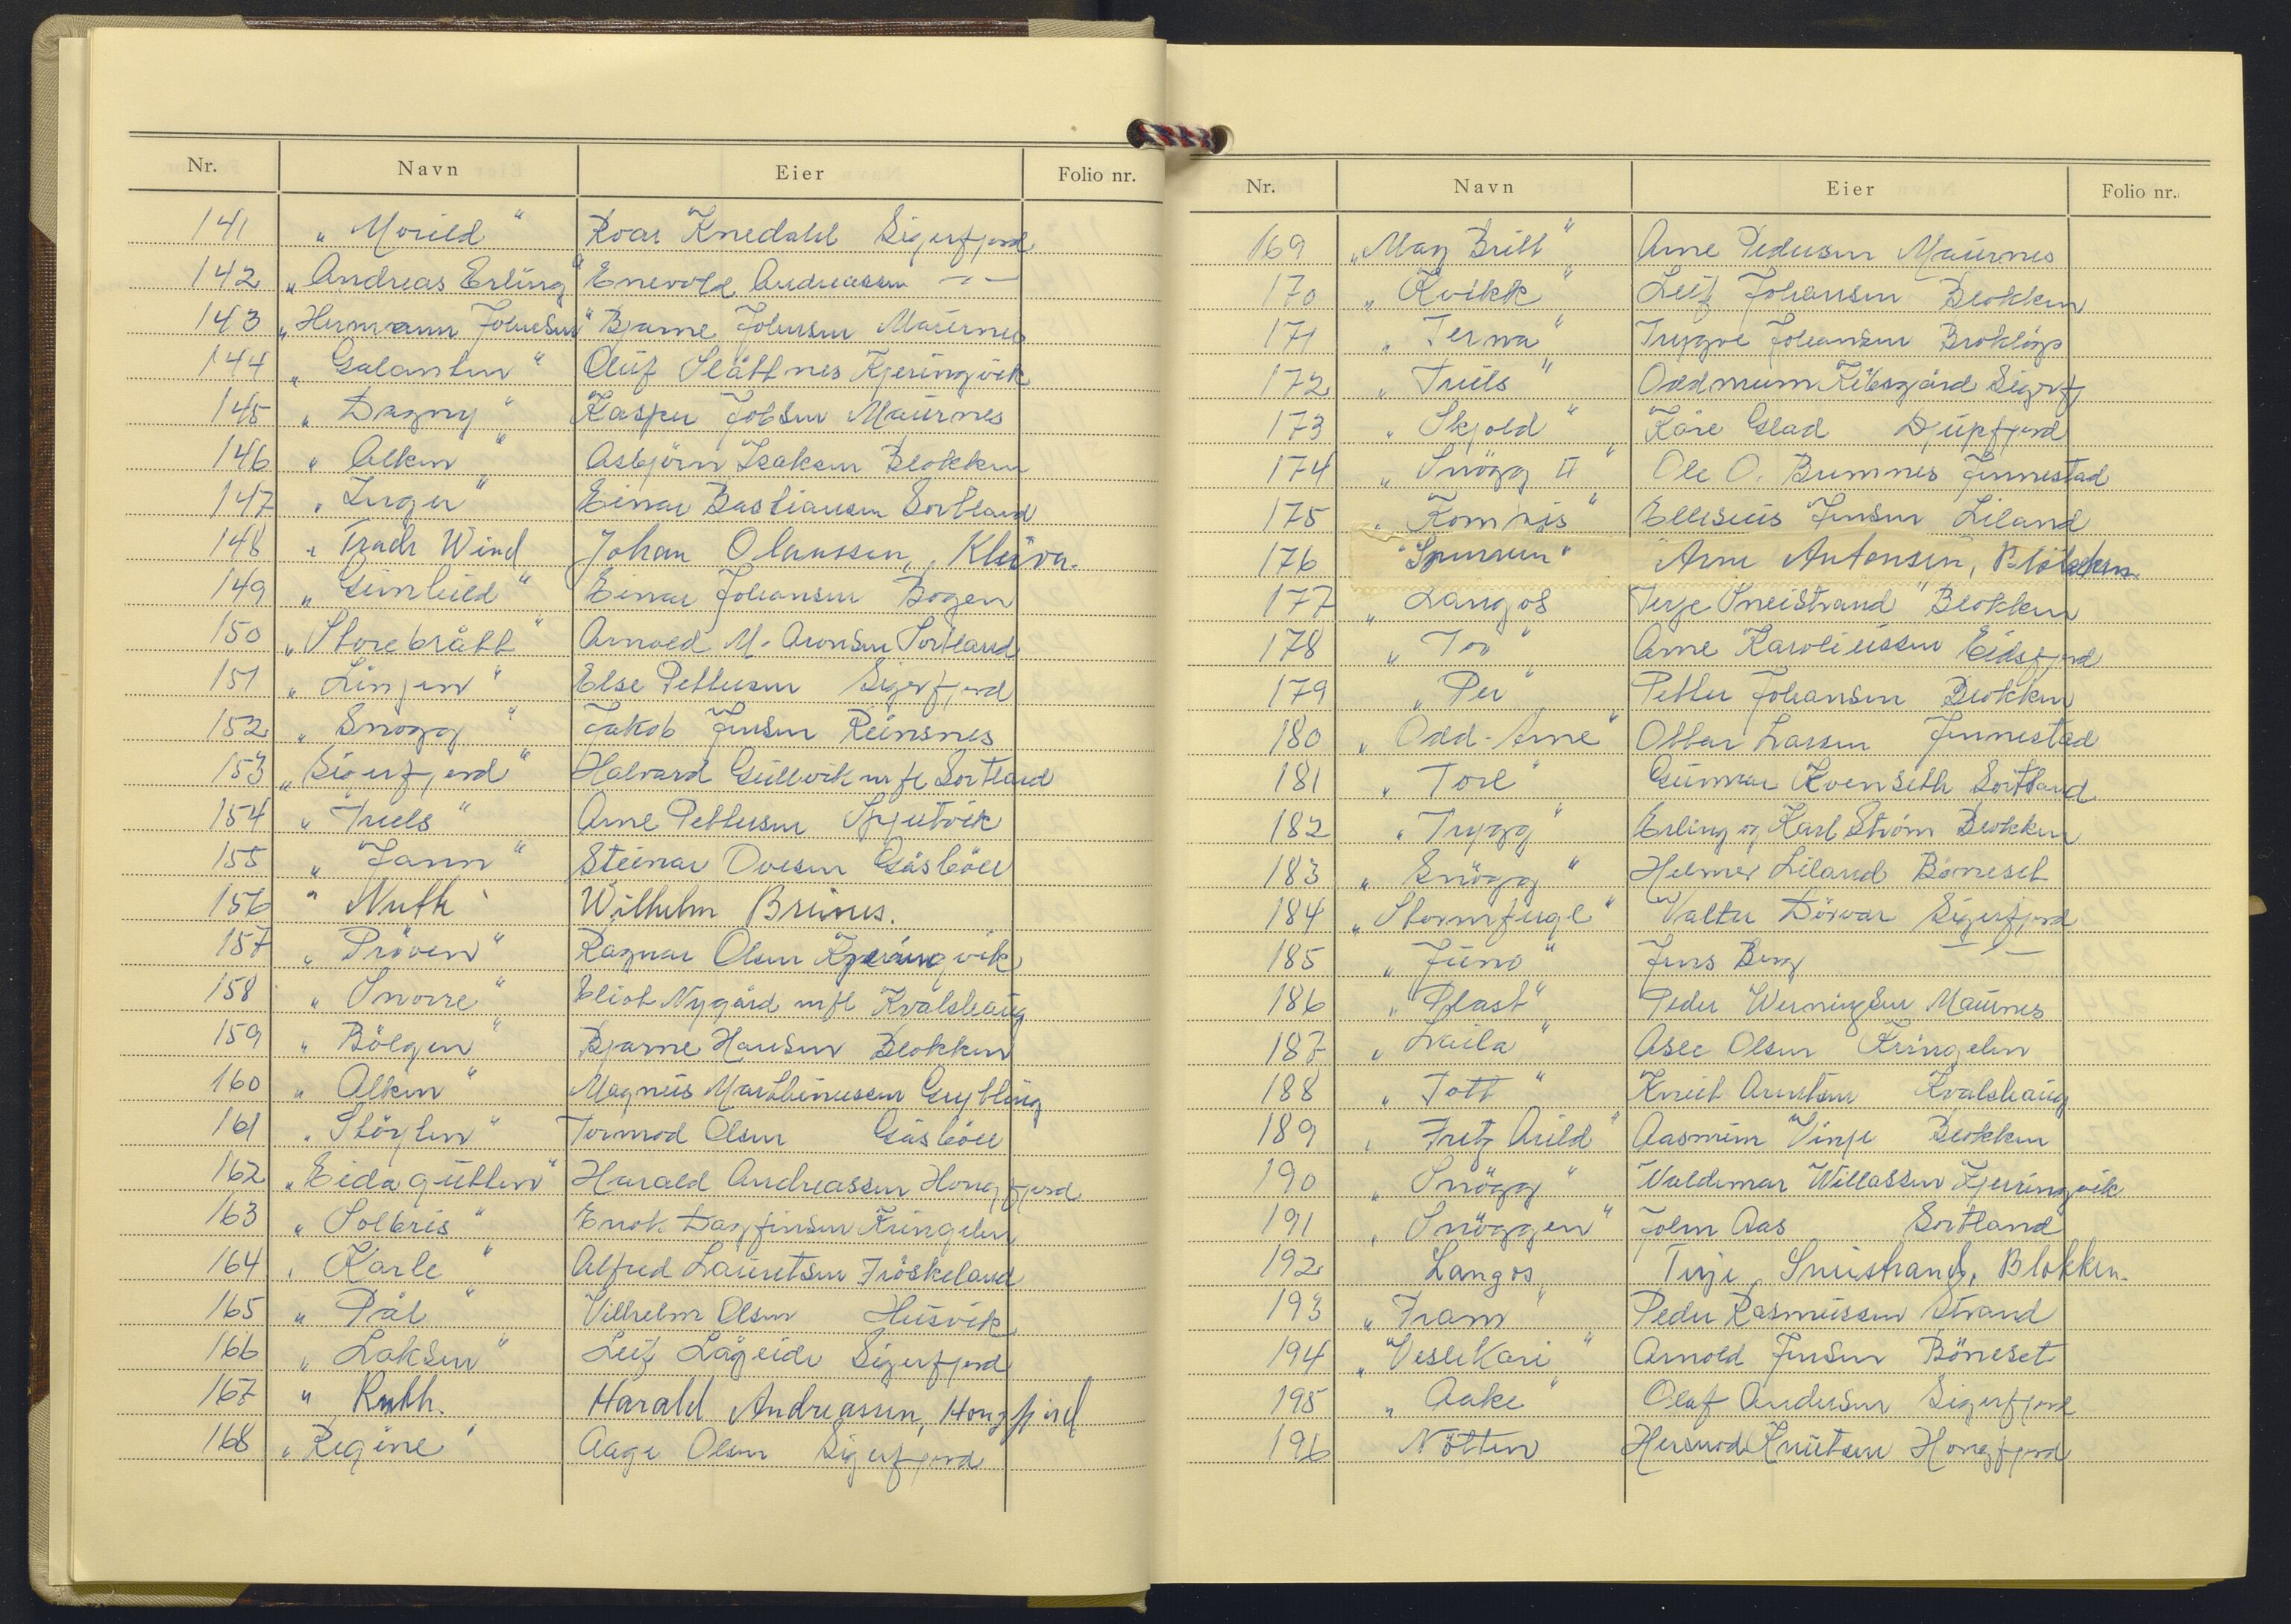 Nr. Navn Eier Folio nr.
141 „ Morild “ Roar Knedahl Sigerfjord
142 „ Andreas Erling “ Enevold Andreassen — “ —
143 „ Hermann Johnsen “ Bjarne Johnsen Maurnes
144 „ Galanten “ Oluf Slåttnes Kjeringvik
145 „ Dagny “ Kasper Jobsen Maurnes
146 „ Alken “ Asbjörn Isaksen Blokken
147 „ Inger “ Einar Bastiansen Sortland
148 „ Trade Wind Johan Olaussen, Kleiva.
149 „ Gunhild “ Einar Johansen Bogen
150 „ Storebrått “ Arnold M. Aronsen Sortland
151 „ Linjen “ Else Pettersen Sigerfjord
152 „ Snogg “ Jakob Jensen Reinsnes
153 „ Sigerfjord “ Halvard Gullvik m fl Sortland
154 „ Truls “ Arne Pettersen Spjutvik
155 „ Jann “ Steinar Ovesen Gåsböll
156 „ Nuth “ Wilhelm Brines.
157 „ Pröven “ Ragnar Olsen Kjeringvik
158 „ Snorre “ Eliot Nygård mfl Kvalshaug
159 „ Bölgen “ Bjarne Hansen Blokken
160 „ Alken “ Magnus Marthinussen Grytting
161 „ Stöylen “ Tormod Olsen Gåsböll
162 „ Eidagutten “ Harald Andreassen Hongfjord
163 „ Solbris “ Enok Dagfinsen Kringelen
164 „ Karle “ Alfred Lauretsen Fröskeland
165 „ Pål “ Vilhelm Olsen Husvik
166 „ Laksen “ Leif Lågeide Sigerfjord
167 „ Ruth. Harald Andreassen, Hongfjord
168 „ Regine “ Aage Olsen Sigerfjord
Nr. Navn Eier Folio nr.
169 „ May Britt “ Arne Pedersen Maurnes
170 „ Kvikk “ Leif Johansen Blokken
171 „ Terna “ Trygve Johansen Brokløys
172 „ Truls “ Oddmunn Kibsgård Sigerfj
173 „ Skjold “ Kåre Glad Djupfjord
174 „ Snögg II “ Ole O. Bremnes Jennestad
175 „ Kornpis “ Elliseus Jensen Liland
176 “ Spurven “ Arne Antonsen, Blokken
177 „ Langos “ Terje Sneistrand Blokken
178 „ Tor “ Arne Karoliussen Eidsfjord
179 „ Per “ Petter Johansen Blokken
180 „ Odd-Arne “ Ottar Larsen Jennestad
181 „ Tore “ Gunnar Kvenseth Sortland
182 „ Trygg “ Erling og Karl Ström Blokken
183 „ Snögg “ Helmer Liland Böneset
184 „ Stormfugl “ Valter Dörvar Sigerfjord
185 „ Juno “ Jens Berg — “ —
186 „ Plast “ Peder Werningsen Maurnes
187 „ Laila “ Asle Olsen Kringelen
188 „ Tott “ Knut Arntsen Kvalshaug
189 „ Fretz Arild “ Aasmun Vinje Blokken
190 „ Snögg “ Valdemar Willassen Kjeringvik
191 „ Snöggen “ John Aas Sortland
192 Langos Terje Sneistrand, Blokken.
193 „ Fram “ Peder Rasmussen Strand
194 „ Veslekari “ Arnold Jensen Böneset
195 „ Aake “ Olaf Andersen Sigerfjord
196 Nötten Hermod Knutsen Hongfjord